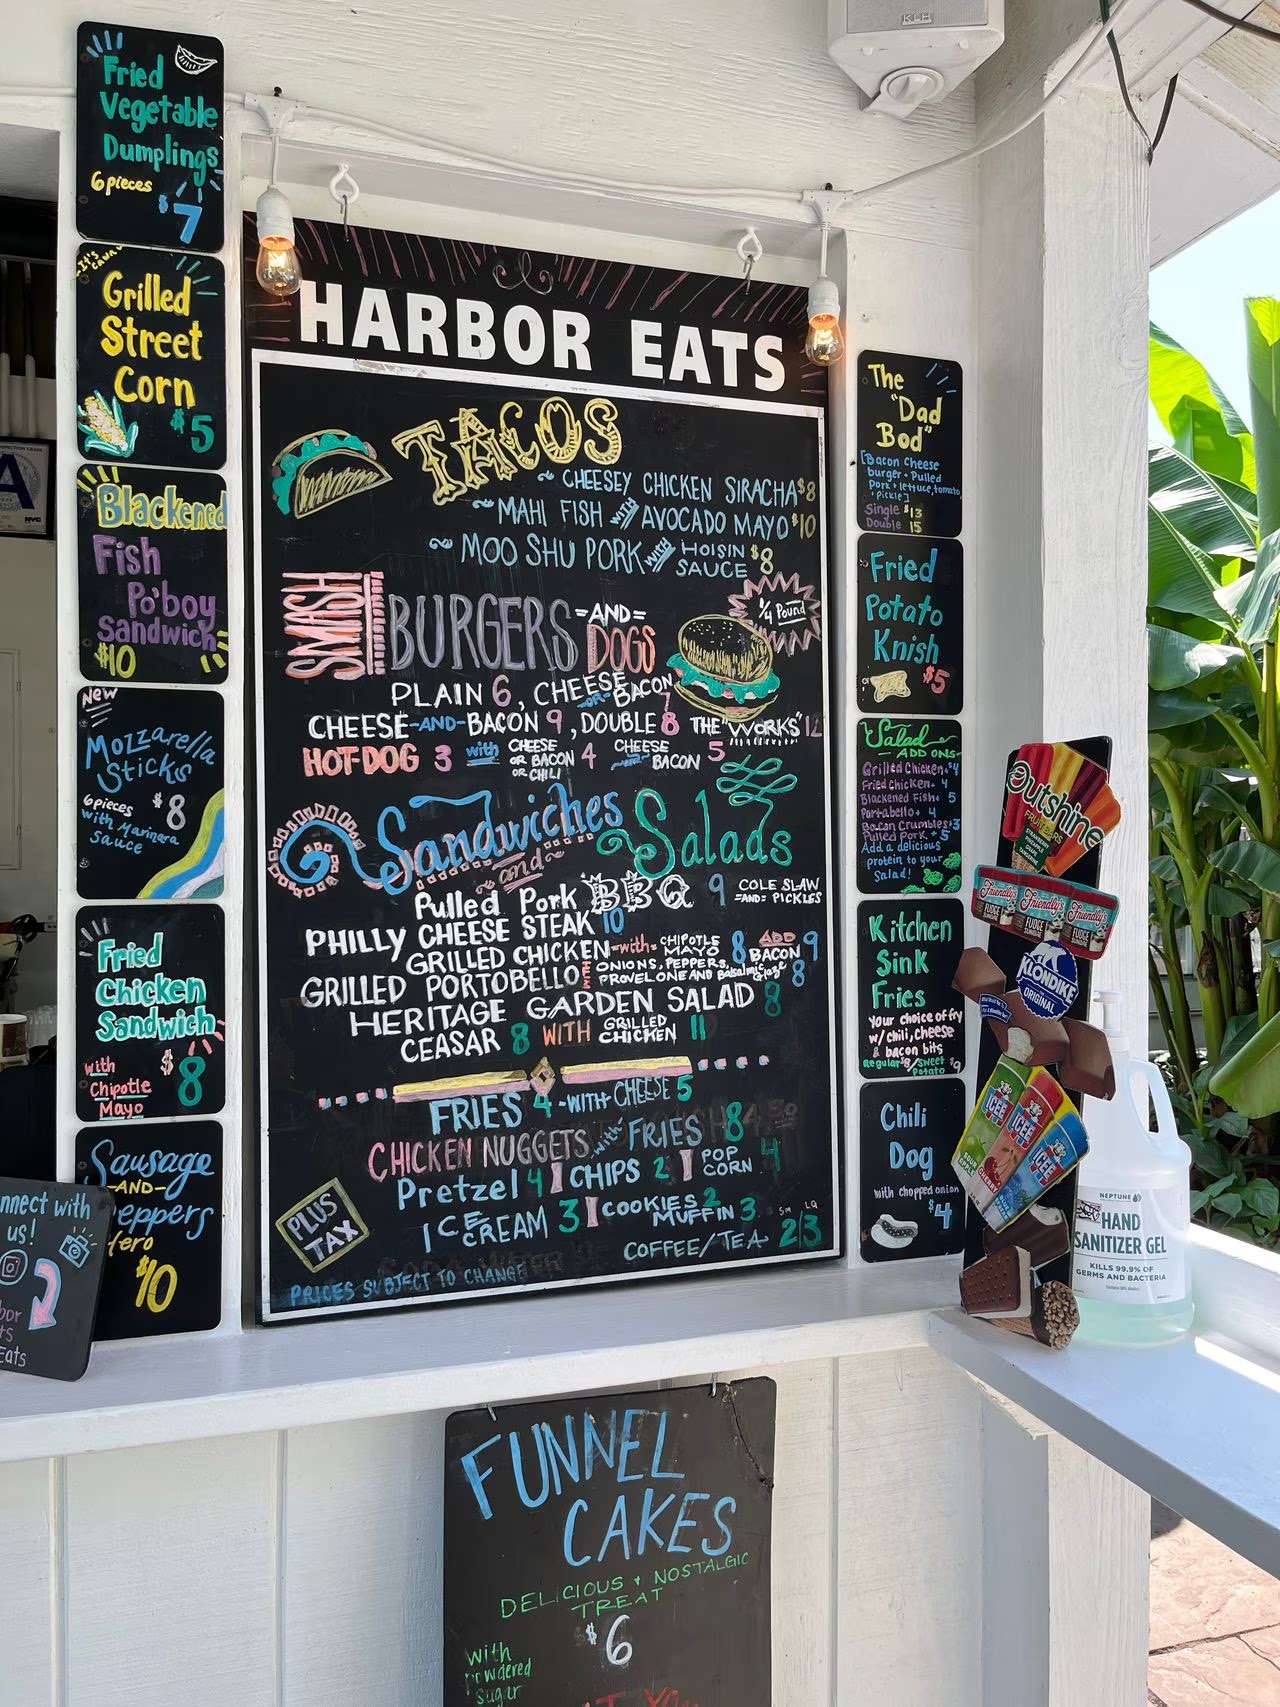 KLH
Fried
Vegetable
Dumplings
6 pieces
$7
It's
Grilled
Street
Corn
$5
Blackened
Fish
Po'boy
Sandwich
$10
New
Mozzarella
Sticks
6 pieces $8
with Marinara
Sauce
Fried
Chicken
Sandwich
with $8
Chipotle
Mayo
Sausage
-AND-
eppers
Hero
$10
nnect with
us!
bor
ts
Eats
A
NYC
HARBOR EATS
TACOS
~ CHEESEY CHICKEN SIRACHA $8
~ MAHI FISH with AVOCADO MAYO $10
~ MOO SHU PORK with HOISIN SAUCE $8
SMASH BURGERS =AND= DOGS
1/4 Pound
PLAIN 6, CHEESE -OR- BACON 7
CHEESE-AND-BACON 9, DOUBLE 8 THE "WORKS" 12
HOT-DOG 3 with CHEESE OR BACON OR CHILI 4 CHEESE BACON 5
Sandwiches and Salads
Pulled Pork BBQ 9 COLE SLAW =AND= PICKLES
PHILLY CHEESE STEAK 10
GRILLED CHICKEN -with- CHIPOTLE MAYO 8 ADD BACON 9
GRILLED PORTOBELLO ONIONS, PEPPERS, PROVELONE AND Balsalmic Glaze 8
HERITAGE GARDEN SALAD 8
CEASAR 8 WITH GRILLED CHICKEN 11
FRIES 4 -WITH CHEESE 5
CHICKEN NUGGETS with FRIES 8
Pretzel 4 | CHIPS 2 | POP CORN 4
ICE CREAM 3 | COOKIES 2 MUFFIN 3
SM LG
COFFEE/TEA 2|3
PLUS
TAX
PRICES SUBJECT TO CHANGE
The
"Dad
Bod"
[Bacon Cheese
burger + Pulled
Pork + lettuce, tomato
+ Pickle]
Single $13
Double 15
Fried
Potato
Knish
$5
Salad
ADD ONS-
Grilled Chicken $4
Fried Chicken 4
Blackened Fish 5
Portabello 4
Bacon Crumbles 3
Pulled Pork 5
Add a delicious
protein to your
Salad!
Kitchen
Sink
Fries
Your choice of fry
w/ chili, cheese
& bacon bits
Regular $8/Sweet Potato $9
Chili
Dog
with chopped onion
$4
Outshine
FRUIT BARS
Friendly's Friendly's Friendly's
FUDGE SUNDAE FUDGE SUNDAE FUDGE SUNDAE
KLONDIKE
ORIGINAL
ICEE ICEE ICEE
SOUR APPLE CHERRY
NEPTUNE
HAND
SANITIZER GEL
KILLS 99.9% OF
GERMS AND BACTERIA
FUNNEL
CAKES
DELICIOUS + NOSTALGIC
TREAT
$6
with
powdered
sugar